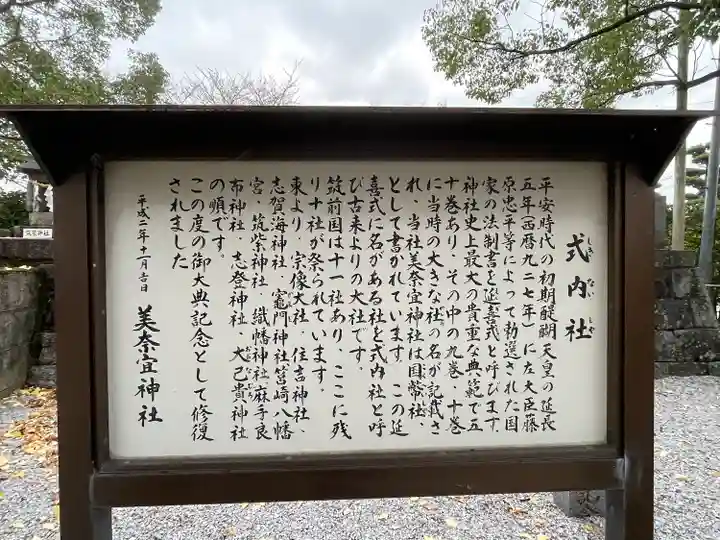 式内社
しき ない しや
平安時代の初期醍醐天皇の延長
五年(西暦九二七年)に左大臣藤
原忠平等によって勅選された国
家の法制書を延喜式と呼びます。
神社史上最大の貴重な典範で五
十巻あり、その中の九巻、十巻
に当時の大きな社の名が記載さ
れ、当社美奈宜神社は国幣社、
として書かれています。この延
喜式に名がある社を式内社と呼
び古来よりの大社です。
筑前国は十一社あり、ここに残
り十社が祭られています。
東より、宗像大社、住吉神社、
志賀海神社、竈門神社筥崎八幡
宮、筑紫神社、織幡神社麻手良
布神社、志登神社、大己貴神社
おおなむち
の順です。
この度の御大典記念として修復
されました
平成二年十一月吉日
美奈宜神社